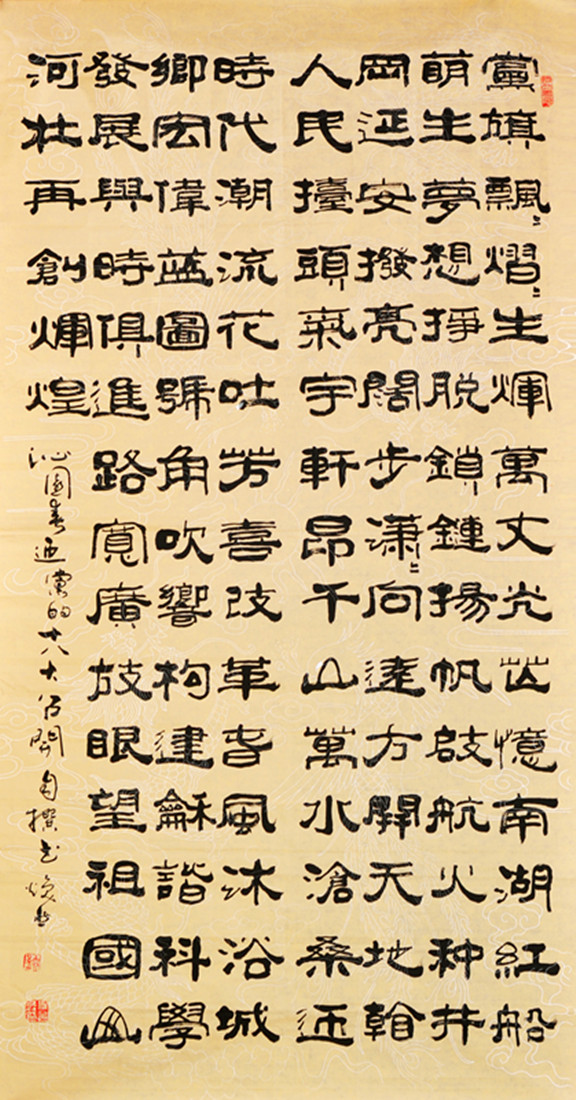 黨旗飄〻熠〻生輝萬丈光芒憶南湖紅船
萌生夢想掙脫鎖鏈揚帆啟航火种井
岡延安撥亮闊步瀟〻向遠方開天地
人民擡頭氣宇軒昂千山萬水滄桑迎
時代潮流花吐芳喜改革春風沐浴城
鄉宏偉藍圖號角吹響构建龢諧科學
發展與時俱進路寬廣放眼望祖國山
河壯再創輝煌
沁園春迎黨的十八大召開自撰書